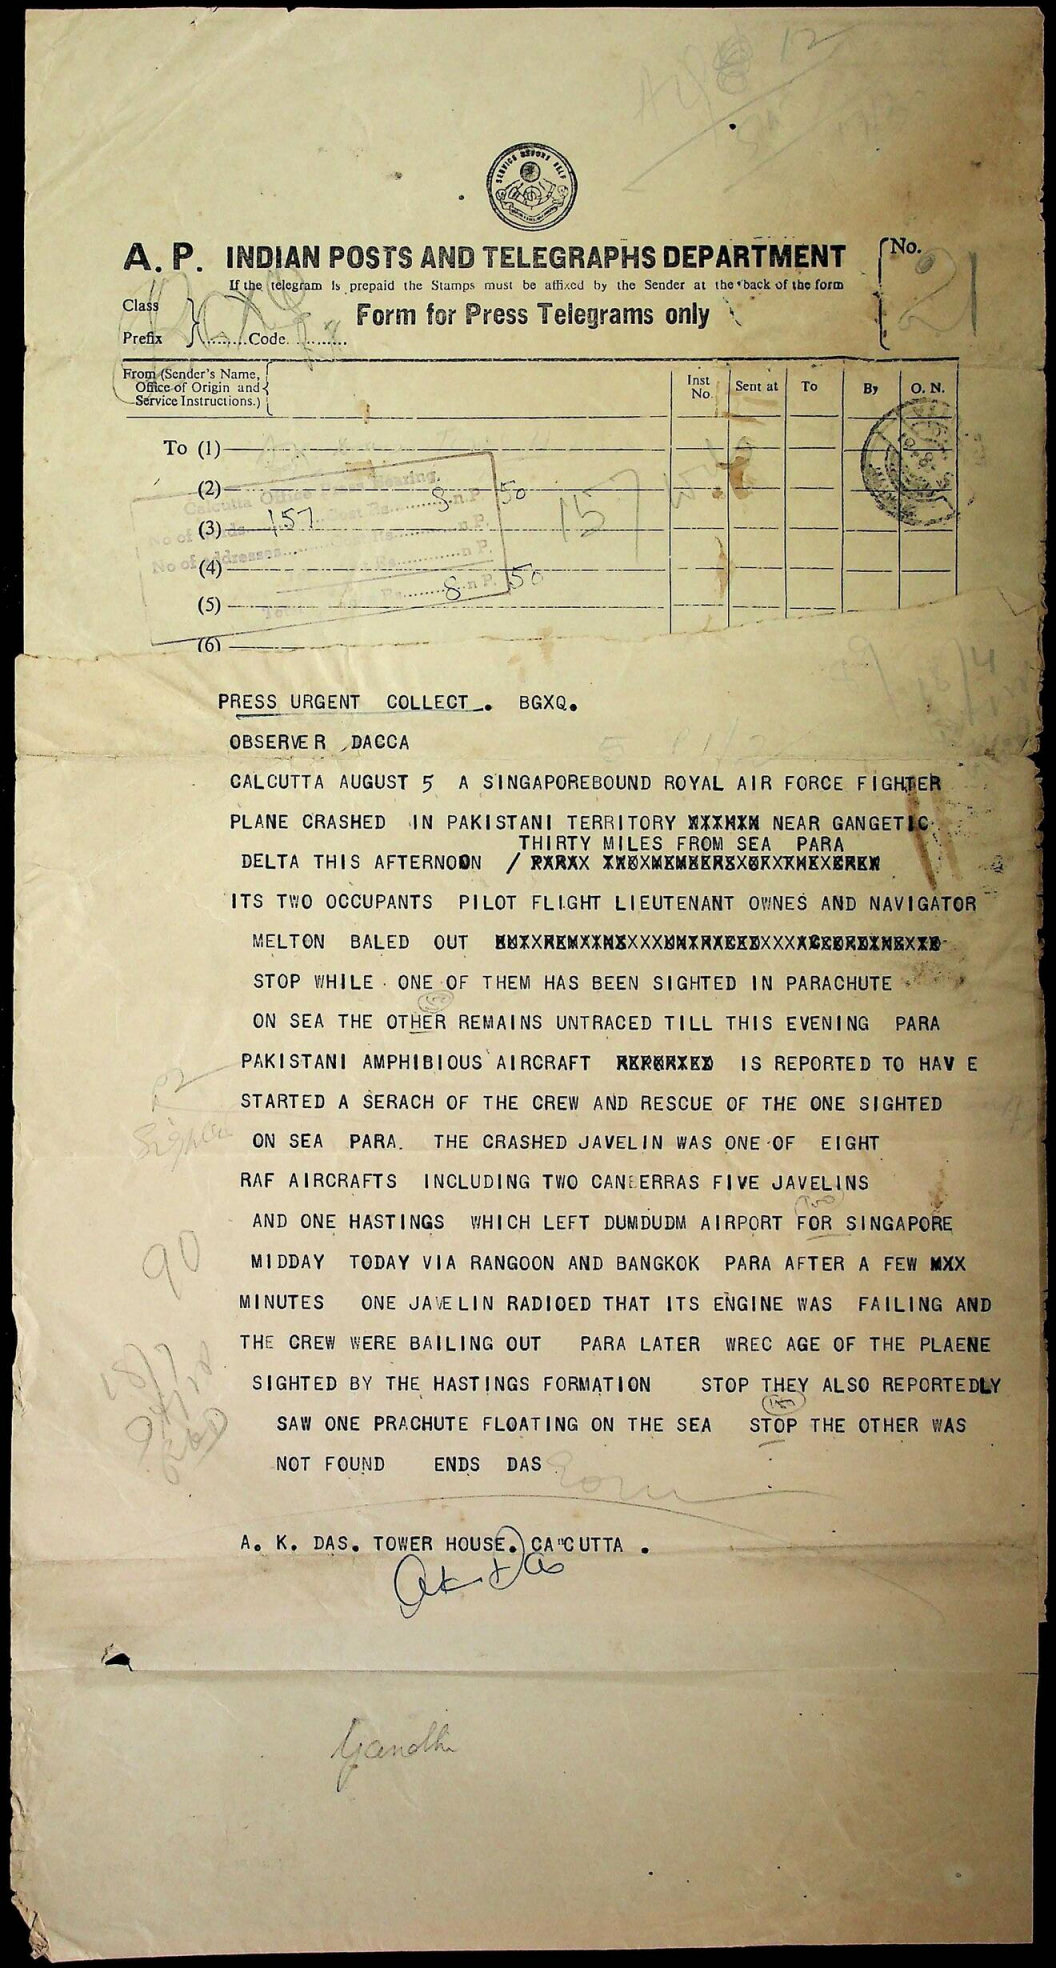 SERVICE BEFORE SELF
A. P. INDIAN POSTS AND TELEGRAPHS DEPARTMENT
No. 21
If the telegram is prepaid the Stamps must be affixed by the Sender at the back of the form
Form for Press Telegrams only
Class
Prefix
Code
From (Sender's Name,
Office of Origin and
Service Instructions.)
Inst No. Sent at To By O. N.
To (1)
(2)
Calcutta Office Press Bearing.
8 n.P. 50
(3) 157 157
No of addresses
(4)
(5)
8 n P. 50
(6)
PRESS URGENT COLLECT . BGXQ.
OBSERVER DACCA
CALCUTTA AUGUST 5 A SINGAPOREBOUND ROYAL AIR FORCE FIGHTER
PLANE CRASHED IN PAKISTANI TERRITORY NEAR GANGETIC
THIRTY MILES FROM SEA PARA
DELTA THIS AFTERNOON /
ITS TWO OCCUPANTS PILOT FLIGHT LIEUTENANT OWNES AND NAVIGATOR
MELTON BALED OUT
STOP WHILE ONE OF THEM HAS BEEN SIGHTED IN PARACHUTE
ON SEA THE OTHER REMAINS UNTRACED TILL THIS EVENING PARA
PAKISTANI AMPHIBIOUS AIRCRAFT IS REPORTED TO HAV E
STARTED A SERACH OF THE CREW AND RESCUE OF THE ONE SIGHTED
ON SEA PARA. THE CRASHED JAVELIN WAS ONE OF EIGHT
RAF AIRCRAFTS INCLUDING TWO CANBERRAS FIVE JAVELINS
AND ONE HASTINGS WHICH LEFT DUMDUDM AIRPORT FOR SINGAPORE
MIDDAY TODAY VIA RANGOON AND BANGKOK PARA AFTER A FEW MXX
MINUTES ONE JAVELIN RADIOED THAT ITS ENGINE WAS FAILING AND
THE CREW WERE BAILING OUT PARA LATER WREC AGE OF THE PLAENE
SIGHTED BY THE HASTINGS FORMATION STOP THEY ALSO REPORTEDLY
SAW ONE PRACHUTE FLOATING ON THE SEA STOP THE OTHER WAS
NOT FOUND ENDS DAS
90
A. K. DAS. TOWER HOUSE. CA"CUTTA .
AK Das
Gandhi